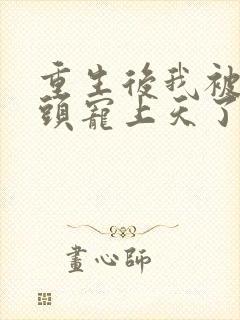 重生後我被
頭寵上天了
畫心師